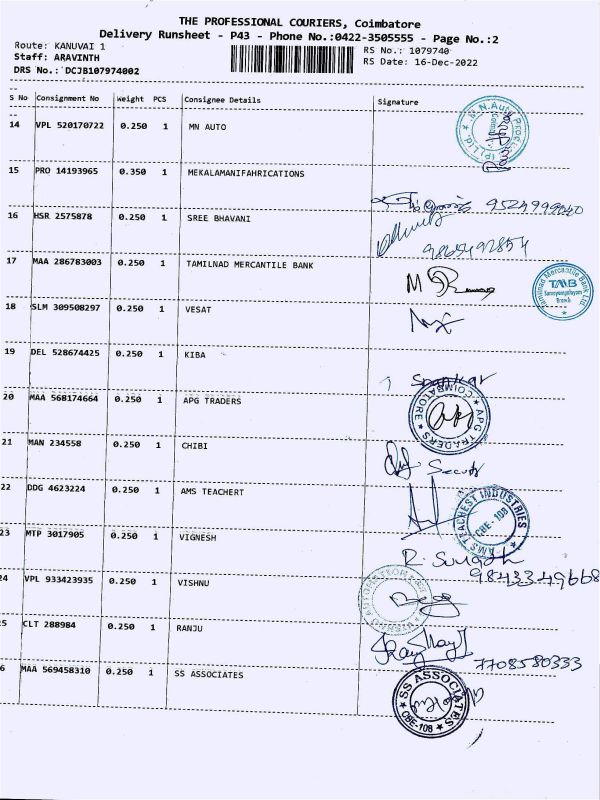 THE PROFESSIONAL COURIERS, Coimbatore
Delivery Runsheet - P43 - Phone No.:0422-3505555 - Page No.:2
Route: KANUVAI 1
RS No.: 1079740
Staff: ARAVINTH
RS Date: 16-Dec-2022
DRS No.: DCJB107974002
S No Consignment No Weight PCS Consignee Details Signature
14 VPL 520170722 0.250 1 MN AUTO
15 PRO 14193965 0.350 1 MEKALAMANIFAHRICATIONS
9524999940
16 HSR 2575878 0.250 1 SREE BHAVANI
9865492854
17 MAA 286783003 0.250 1 TAMILNAD MERCANTILE BANK
Tamilnad Mercantile Bank Ltd
TMB
Branch
18 SLM 309508297 0.250 1 VESAT
19 DEL 528674425 0.250 1 KIBA
20 MAA 568174664 0.250 1 APG TRADERS
APG TRADERS COIMBATORE
21 MAN 234558 0.250 1 CHIBI
22 DDG 4623224 0.250 1 AMS TEACHERT
AMS TEACHEST INDUSTRIES
CBE-108
23 MTP 3017905 0.250 1 VIGNESH
9843349668
24 VPL 933423935 0.250 1 VISHNU
25 CLT 288984 0.250 1 RANJU
7708580333
6 MAA 569458310 0.250 1 SS ASSOCIATES
SS ASSOCIATES
CBE-108